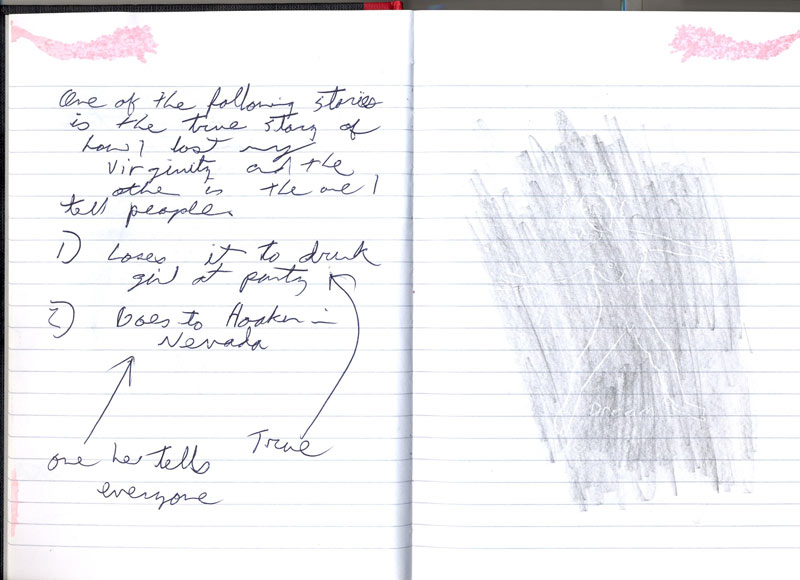 One of the following stories
is the true story of
how I lost my
virginity and the
other is the one I
tell people.
1) Loses it to drunk
girl at party
2) Goes to Hooker in
Nevada
one he tells
everyone
True
Dream